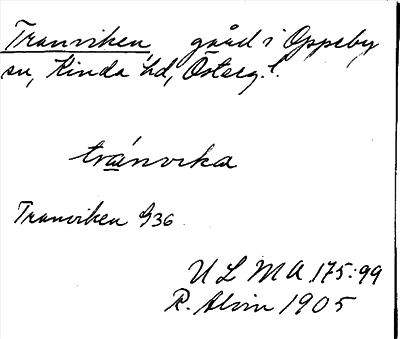 Tranviken, gård i Oppeby
sn, Kinda hd, Österg. l.
tránvika
Tranviken G36
U L M A 175:99
R. Alvin 1905